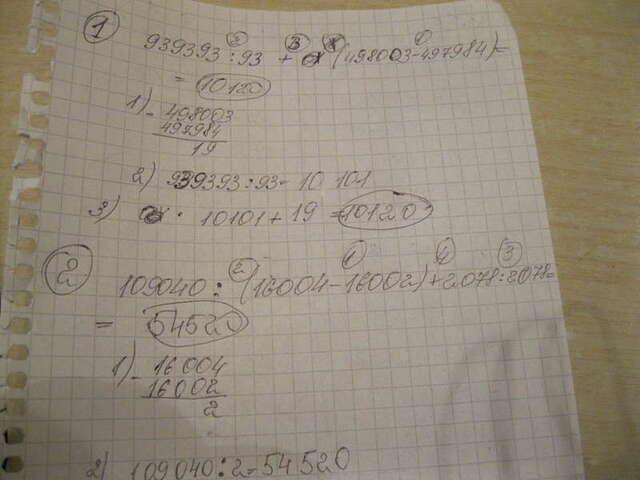 1
2 3 1
939393 : 93 + (498003 - 497984) =
= 10120
1) - 498003
497984
19
2) 939393 : 93 = 10 101
3) 10101 + 19 = 10120
2
2 1 4 3
109040 : (16004 - 16002) + 2078 : 2078 =
= 54520
1) - 16004
16002
2
2) 109040 : 2 = 54 520